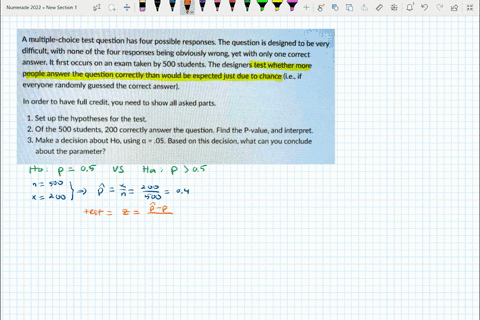 Numerade 2022 » New Section 1
A multiple-choice test question has four possible responses. The question is designed to be very
difficult, with none of the four responses being obviously wrong, yet with only one correct
answer. It first occurs on an exam taken by 500 students. The designers test whether more
people answer the question correctly than would be expected just due to chance (i.e., if
everyone randomly guessed the correct answer).
In order to have full credit, you need to show all asked parts.
1. Set up the hypotheses for the test.
2. Of the 500 students, 200 correctly answer the question. Find the P-value, and interpret.
3. Make a decision about Ho, using α = .05. Based on this decision, what can you conclude
about the parameter?
Ho: p = 0.5 vs Ha: p > 0.5
n = 500
x = 200
⇒ p̂ = x/n = 200/500 = 0.4
test = z = p̂-p